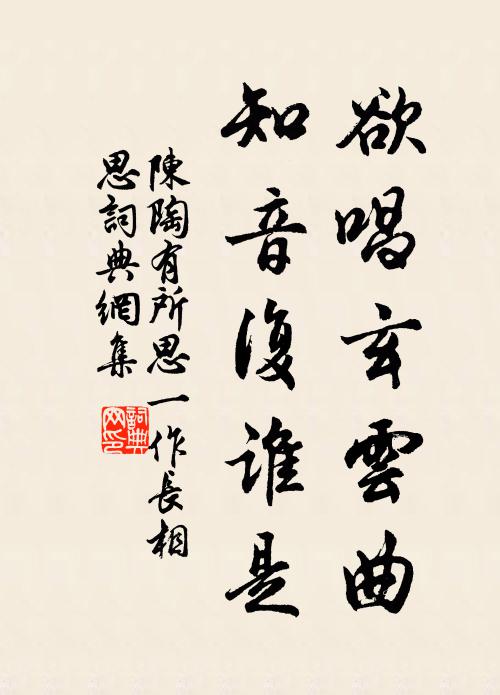 欲唱玄雲曲
知音復誰是
陳陶有所思一作長相
思詞典網集
詞典
网印